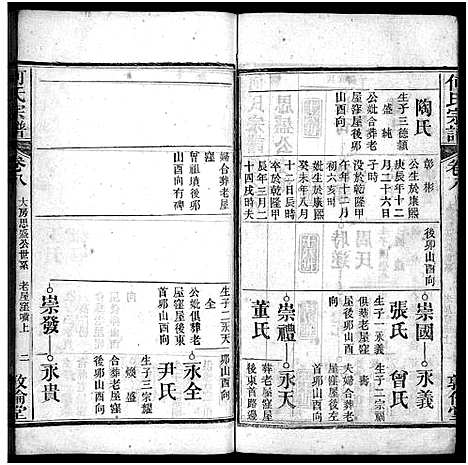 何氏宗譜
卷八
陶氏
生子三德顯
盛 純
公妣合葬老
屋窪屋後卯
山酉向
彭 彬
公生於康熙
庚辰年十二
月二十六日
子時
妣生於康熙
癸未年八月
初六亥時
公卒於乾隆
壬午年十二月
十二日辰時
妣卒於乾隆甲
辰年三月二
十四戌時夫
婦合葬老屋
窪
曾祖墳後卯
山酉向有碑
後卯山酉向
崇國 永義
張氏 曾氏
生子一永義
俱葬老屋窪
屋後卯山酉向
生子二宗
壽
夫婦合葬老
屋窪屋後卯
山酉向
崇禮 永天
董氏
葬老屋窪屋
後東首路邊
卯山酉向
生子二永天
全
公妣俱葬老
屋窪屋後東
首卯山酉向
永全
尹氏
生子三宗耀
燦 盛
合葬老屋窪
屋後東首卯
山酉向
崇發 永貴
何氏宗譜
卷八
大房思盛公世系
老屋窪嘴上
二
敦倫堂